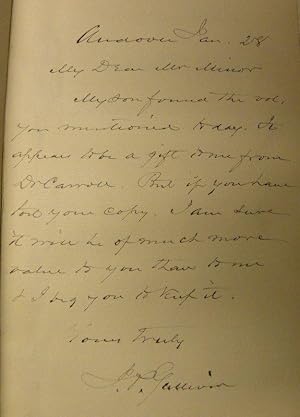 Andover Jan. 28
My Dear Mr Minor
My son found the vol.
you mentioned today. It
appears to be a gift to me from
Dr Carroll. But if you have
lost your copy. I am sure
it will be of much more
value to you than to me
& I beg you to keep it.
Yours Truly